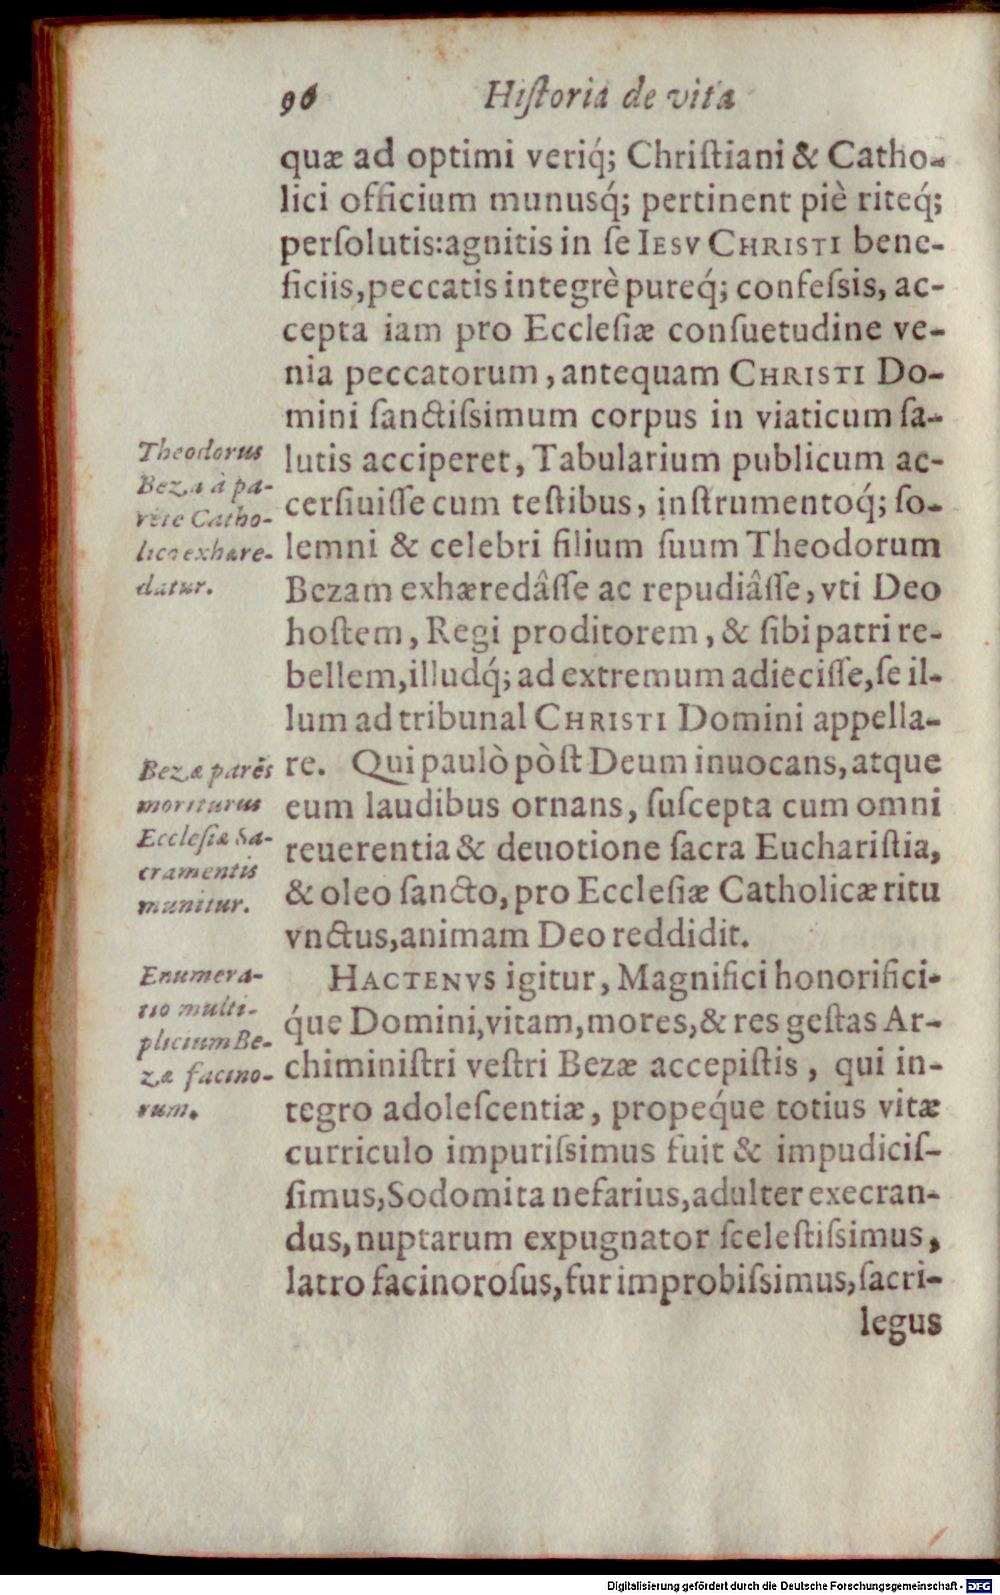 96 Hiſtoria de vita
quæ ad optimi veriq́; Chriſtiani & Catho-
lici officium munusq́; pertinent piè riteq́;
perſolutis:agnitis in ſe IESV CHRISTI bene-
ficiis,peccatis integrè pureq́; confeſsis, ac-
cepta iam pro Eccleſiæ conſuetudine ve-
nia peccatorum, antequam CHRISTI Do-
mini ſanctiſsimum corpus in viaticum ſa-
lutis acciperet, Tabularium publicum ac-
cerſiuiſſe cum teſtibus, inſtrumentoq́; ſo-
lemni & celebri filium ſuum Theodorum
Bezam exhæredâſſe ac repudiâſſe, vti Deo
hoſtem, Regi proditorem, & ſibi patri re-
bellem,illudq́; ad extremum adieciſſe,ſe il-
lum ad tribunal CHRISTI Domini appella-
re. Qui paulò pòſt Deum inuocans, atque
eum laudibus ornans, ſuſcepta cum omni
reuerentia & deuotione ſacra Euchariſtia,
& oleo ſancto, pro Eccleſiæ Catholicæ ritu
vnctus,animam Deo reddidit.
HACTENVS igitur, Magnifici honorifici-
q́ue Domini,vitam,mores,& res geſtas Ar-
chiminiſtri veſtri Bezæ accepiſtis, qui in-
tegro adoleſcentiæ, propeq́ue totius vitæ
curriculo impuriſsimus fuit & impudiciſ-
ſimus,Sodomita nefarius,adulter execran-
dus, nuptarum expugnator ſceleſtiſsimus,
latro facinoroſus,fur improbiſsimus,ſacri-
legus
Theodorus
Beza à pa-
rēte Catho-
lico exhære-
datur.
Bezæ parēs
moriturus
Eccleſiæ Sa-
cramentis
munitur.
Enumera-
tio multi-
plicium Be-
zæ facino-
rum.
Digitalisierung gefördert durch die Deutsche Forschungsgemeinschaft - DFG